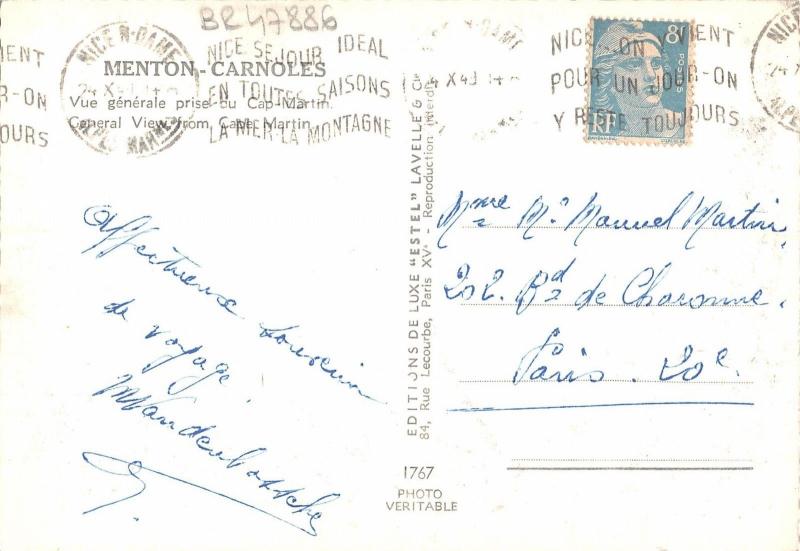 BR47886
NICE N-DAME
24 X 49 14
ALPES MARMES
NICE SEJOUR IDEAL
EN TOUTES SAISONS
LA MER-LA MONTAGNE
IENT
R-ON
OURS
MENTON-CARNOLÈS
Vue générale prise du Cap-Martin.
General View from Cape Martin.
Affectueux souvenir
de voyage
MVandenbossche
EDITIONS DE LUXE "ESTEL" LAVELLE & Cie
84, Rue Lecourbe, Paris XVe - Reproduction Interdite
1767
PHOTO
VERITABLE
4 X 49 14
NICE ON Y VIENT
POUR UN JOUR-ON
Y RESTE TOUJOURS
8F
POSTES
RF
NICE
Mme Mce Manuel Martin.
202. Bd de Charonne.
Paris. 20e.